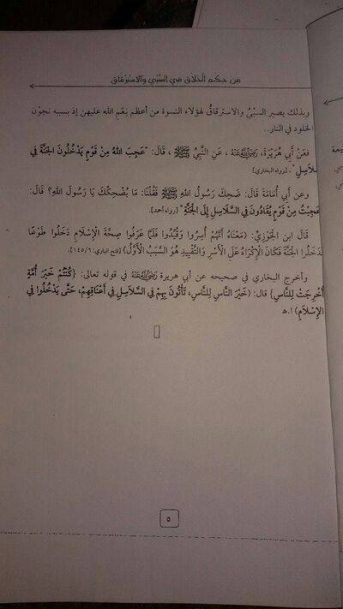 من حكم الخلاق في السبي والاسترقاق
وبذلك يصير السبيُ والاسترقاقُ لهؤلاء النسوة من أعظم نِعَم الله عليهن إذ سببه نجون
الخلود في النار.
فعَنْ أَبِي هُرَيْرَةَ، رَضِيَ اللهُ عَنْهُ ، عَنِ النَّبِيِّ ﷺ، قَالَ: "عَجِبَ اللهُ مِنْ قَوْمٍ يَدْخُلُونَ الجَنَّةَ فِي
سلاسِلَ". [رواه البخاري]
وعن أبي أُمَامَةَ قَالَ: ضَحِكَ رَسُولُ اللهِ ﷺ فَقُلْنَا: مَا يُضْحِكُكَ يَا رَسُولَ اللهِ؟ قَالَ:
عَجِبْتُ مِنْ قَوْمٍ يُقَادُونَ فِي السَّلَاسِلِ إِلَى الجَنَّةِ" [رواه أحمد].
قَالَ ابن الجَوْزِيِّ: (مَعْنَاهُ أَنَّهُمْ أُسِرُوا وَقُيِّدُوا فَلَمَّا عَرَفُوا صِحَّةَ الْإِسْلَامِ دَخَلُوا طَوْعًا
فَدَخَلُوا الْجَنَّةَ فَكَانَ الْإِكْرَاهُ عَلَى الْأَسْرِ وَالتَّقْيِيدِ هُوَ السَّبَبُ الْأَوَّلُ) [فتح الباري: ١٤٥/٦].
وأخرج البخاري في صحيحه عن أبي هريرة رَضِيَ اللهُ عَنْهُ في قوله تعالى: {كُنْتُمْ خَيْرَ أُمَّةٍ
أُخْرِجَتْ لِلنَّاسِ} قال: (خَيْرَ النَّاسِ لِلنَّاسِ، تَأْتُونَ بِهِمْ فِي السَّلَاسِلِ فِي أَعْنَاقِهِمْ، حَتَّى يَدْخُلُوا فِي
الإِسْلَامِ) ا.هـ
٥